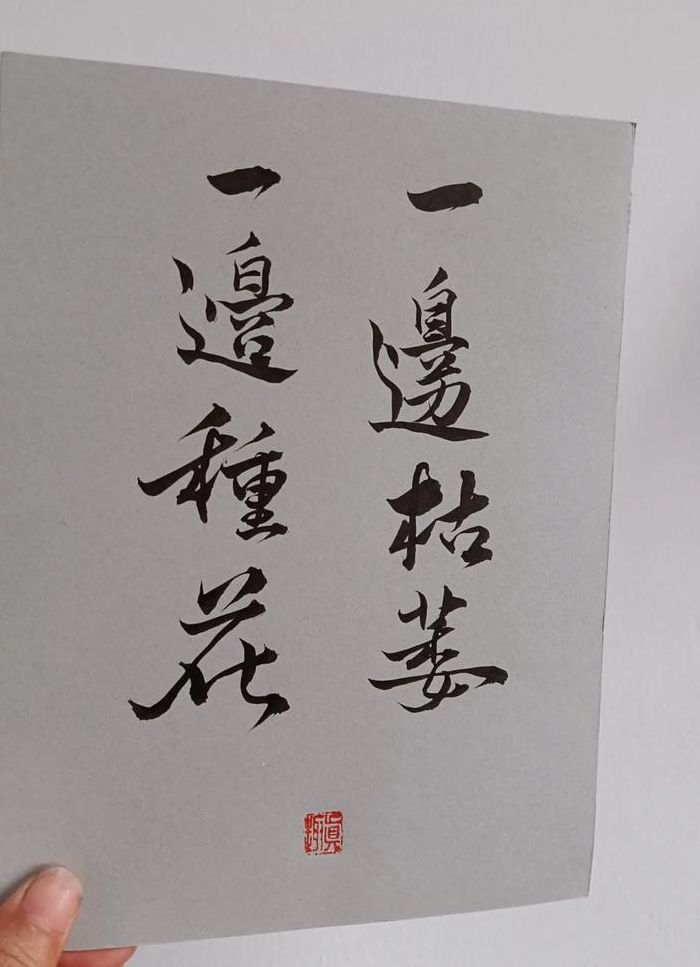 一邊枯萎
一邊種花